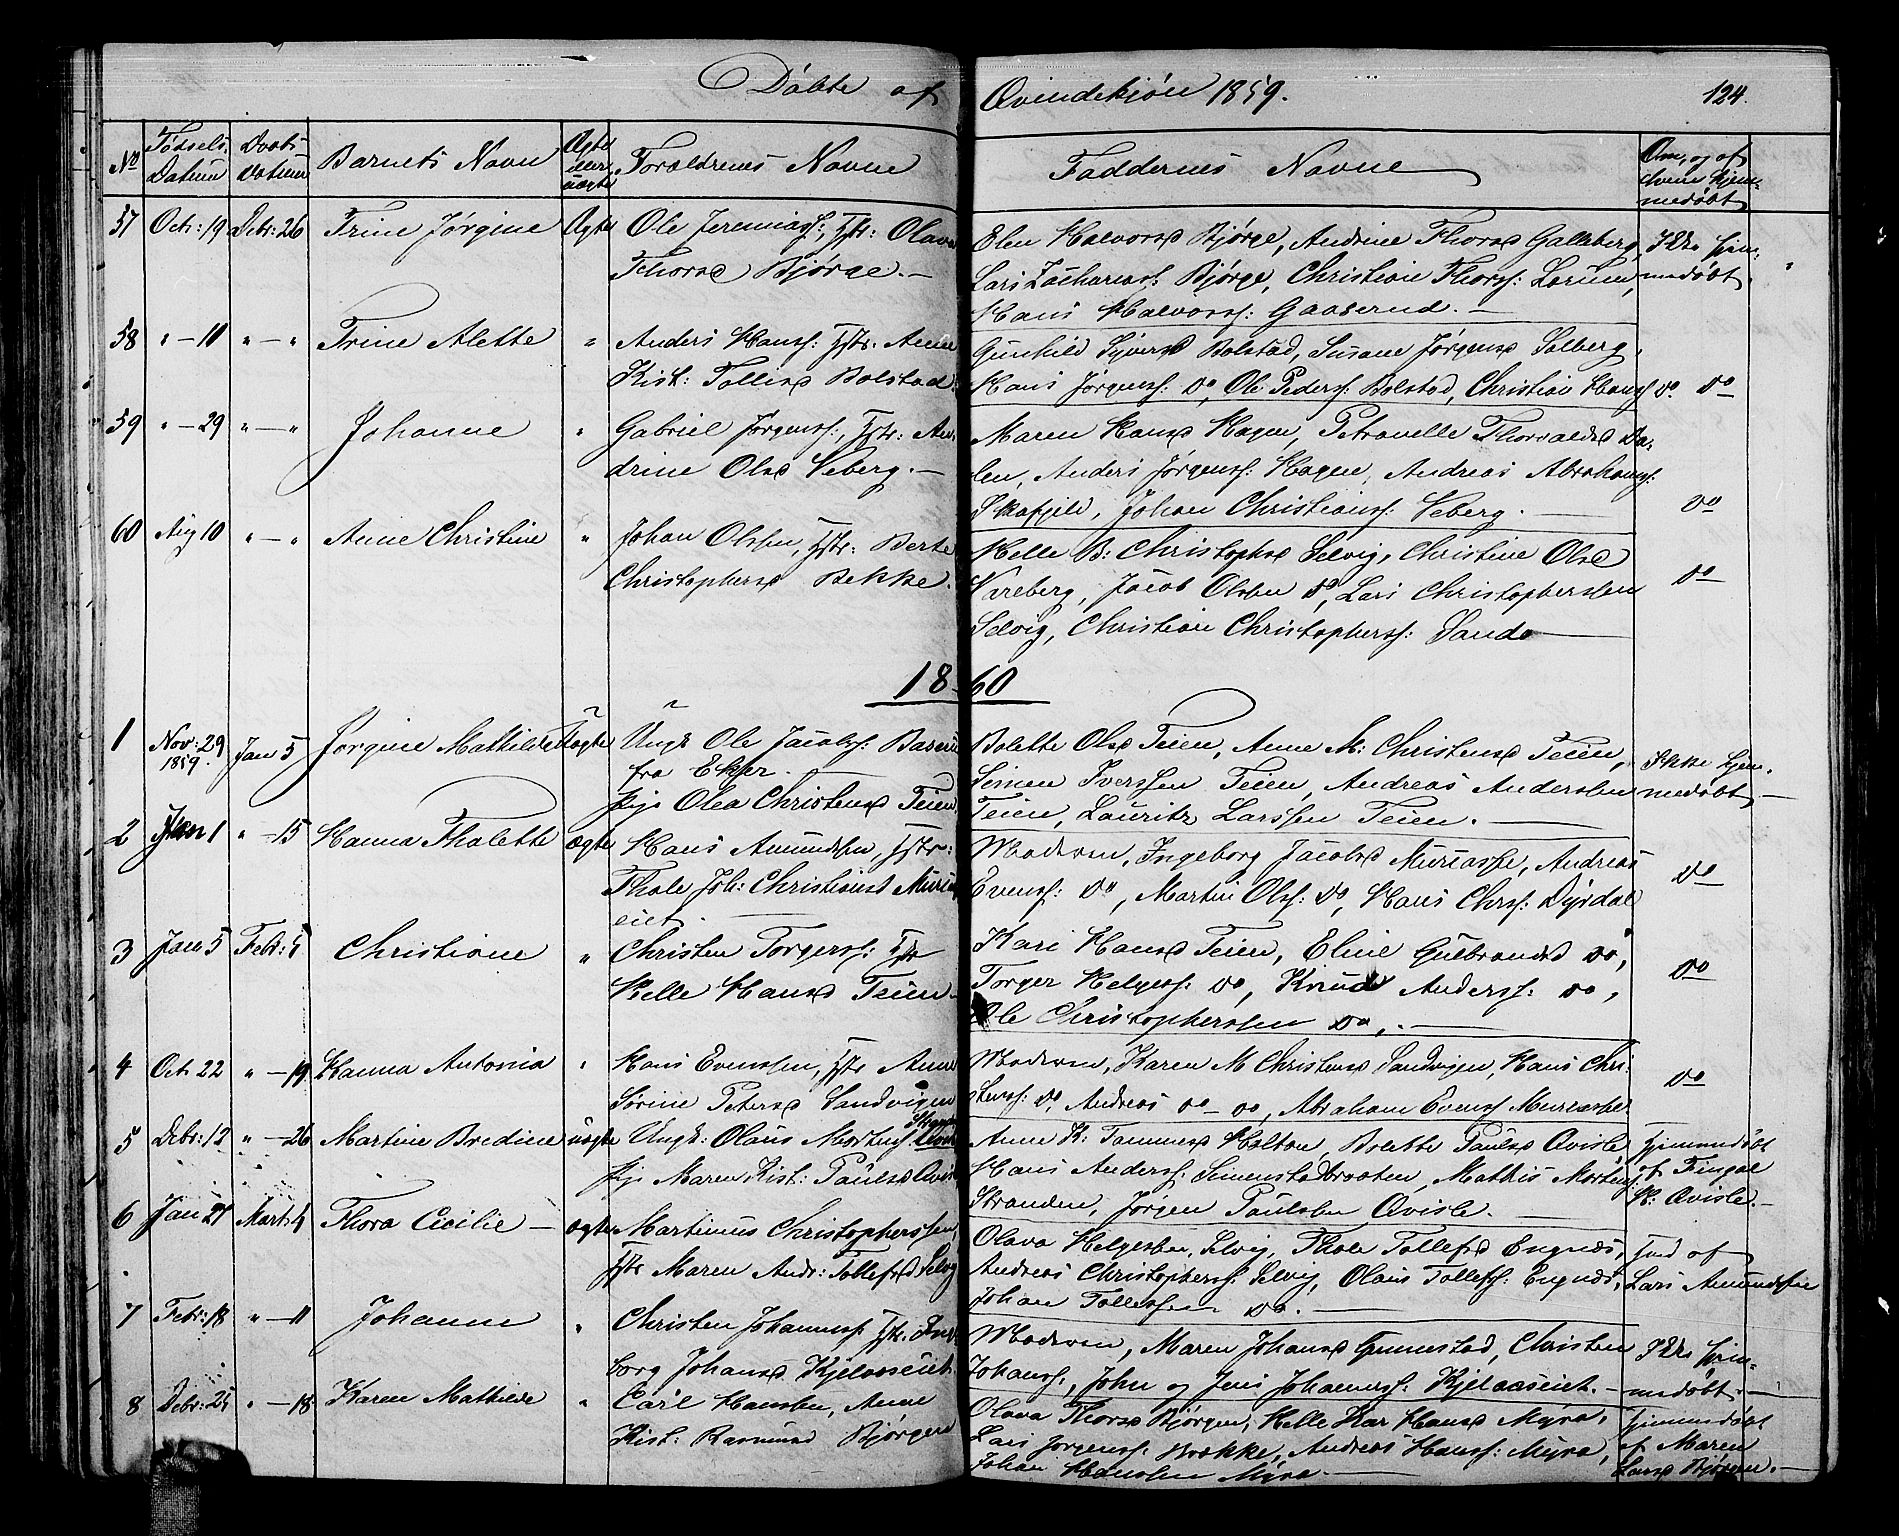 Døbte af Qvindekjøn 1859. 124.
No Fødsels Datum Daabs Datum Barnets Navn Ægte eller uægte Forældrenes Navne Faddernes Navne Om, og af hvem hjemmedøbt
57 Octr: 19 Debr: 26 Trine Jørgine Ægte Ole Jeremiass:, Hstr: Olava
Thorsd Bjørge. —
Elen Halvorsd Bjørge, Andrine Thorsd Galleberg,
Lars Zachariass: Bjørge, Christian Thorss: Lerum,
Hans Halvorss: Gaaserud. —
Ikke hjem-
medøbt.
58 " — 10 " — " Trine Alette " Anders Hanss: Hstr: Anne
Kist: Tollefsd Bolstad.
Gunhild Syversd Bolstad, Susane Jørgensd Solberg,
Hans Jørgenss: do, Ole Pederss: Bolstad, Christian Hanss do.
do
59 " — 29 " — " Johanne " Gabriel Jørgenss:, Hstr: An-
drine Olsd Seberg. —
Maren Hansd Hagen, Petronelle Thorvaldsd Da-
len, Anders Jørgenss: Hagen, Andreas Abrahamss:
Skafjeld, Johan Christianss: Seberg. —
do
60 Aug 10 " — " Anne Christine " Johan Olssen, Hstr: Berte
Christophersd Bekke.
Helle B: Christophsd Selvig, Christine Olsd
Vereberg, Jacob Olssen do, Lars Christopherssen
Selvig, Christian Christopherss: Sande —
do
1860
1 Nov: 29 1859. Jan 5 Jørgine Mathilde Uægte Ungk Ole Jacobss:
fra Eker. —
Pige Olea Christensd Teien
Bolette Olsd Teien, Anne M: Christensd Teien,
Simen Iverssen Teien, Andreas Anderssen
Teien, Lauritz Larssen Teien. —
Ikke hjem-
medøbt —
2 Jan 1 " — 15 Hanna Thalette ægte Hans Amundssen, Hstr:
Thale Joh: Christiansd
eiet. —
Moderen, Ingeborg Jacobsd Muraasse, Andreas
Evenss: do, Martin Olss: do, Hans Chrss: Dyrdal
do
3 Jan 5 Febr: 5 Christiane " Christen Torgerss: Hstr
Helle Hansd Teien —
Kari Hansd Teien, Eline Gulbrandsd do,
Torger Helgess: do, Knud Anderss: do,
Ole Christopherssen do, . —
do
4 Oct 22 " — 19 Hanna Antonia " Hans Evenssen, Hstr Anne
Sørine Petersd Sandvigen
Moderen, Karen M Christensd Sandvigen, Hans Chri-
stenss: do, Andreas do — do, Abraham Evenss Muraasse
do
5 Debr: 12 " — 26 Martine Bredine uægte Ungk: Olaus Mortens:
Pige Maren Kist: Paulsd Qvisle
Anne K: Tommesd Holtan, Bolette Paulsd Qvisle
Hans Anderss: Simenstadbraaten, Mathis Mortens:
Stranden, Jørgen Paulsen Qvisle. —
Hjemmedøbt
af Fingal
K: Qvisle. —
6 Jan 21 Marts 4 Thora Cecilie — ægte Martinus Christopherssen,
Hstr Maren Andr: Tollefsd Selvig
Olava Helgessen, Selvig, Thale Tollefsd Engnæs,
Andreas Christopherss: Selvig, Olaus Tollefss: Engnæs,
Johan Tollefssen do. —
Hmd af
Lars Amundssen
7 Febr: 18 " — 11 Johanne " Christen Johanness Hstr: Inge-
borg Johansd Kjelaaseiet.
Moderen, Maren Johansd Grimestad, Christen
Johanss:, John og Jens Johanness: Kjelaaseiet. —
Ikke hjem-
medøbt. —
8 Debr: 25 " — 18 Karen Mathilde " Carl Hanssen, Anne
Kist: Rasmusd Bjørgen
Olava Thorsd Bjørgen, Helle Kar Hansd Myra,
Lars Jørgenss: Brekke, Andreas Hanss: Myra,
Johan Hanssen Myra —
Hjemmedøbt
af Maren
Larsd Bjørgen. —